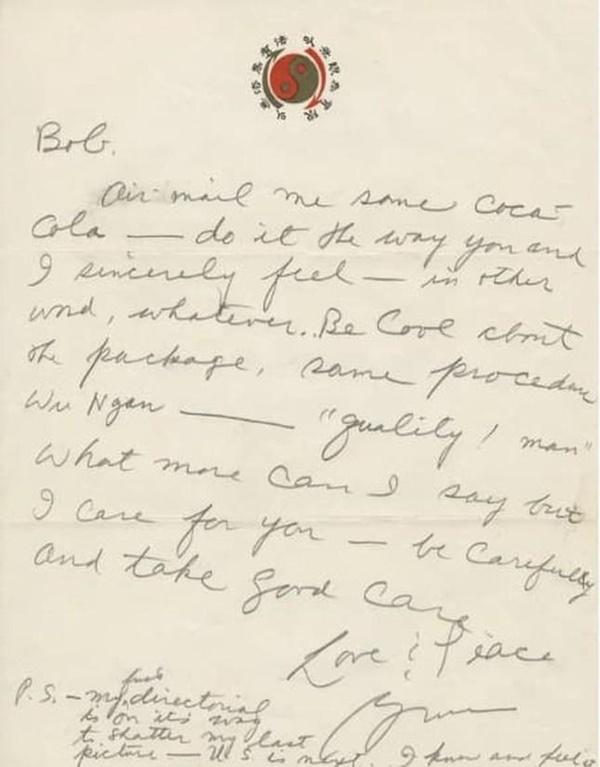 以無法為有法
以無限為有限
Bob.
Air mail me some Coca-
Cola — do it the way you and
I sincerely feel — in other
word, whatever. Be Cool about
the package, same procedure
Wu Ngan — "quality! man"
What more can I say but
I care for you — be carefully
and take good care
Love & Peace
P.S. – my first directorial
is on it's way
to shatter my last
picture — U.S. is next. I know and feel